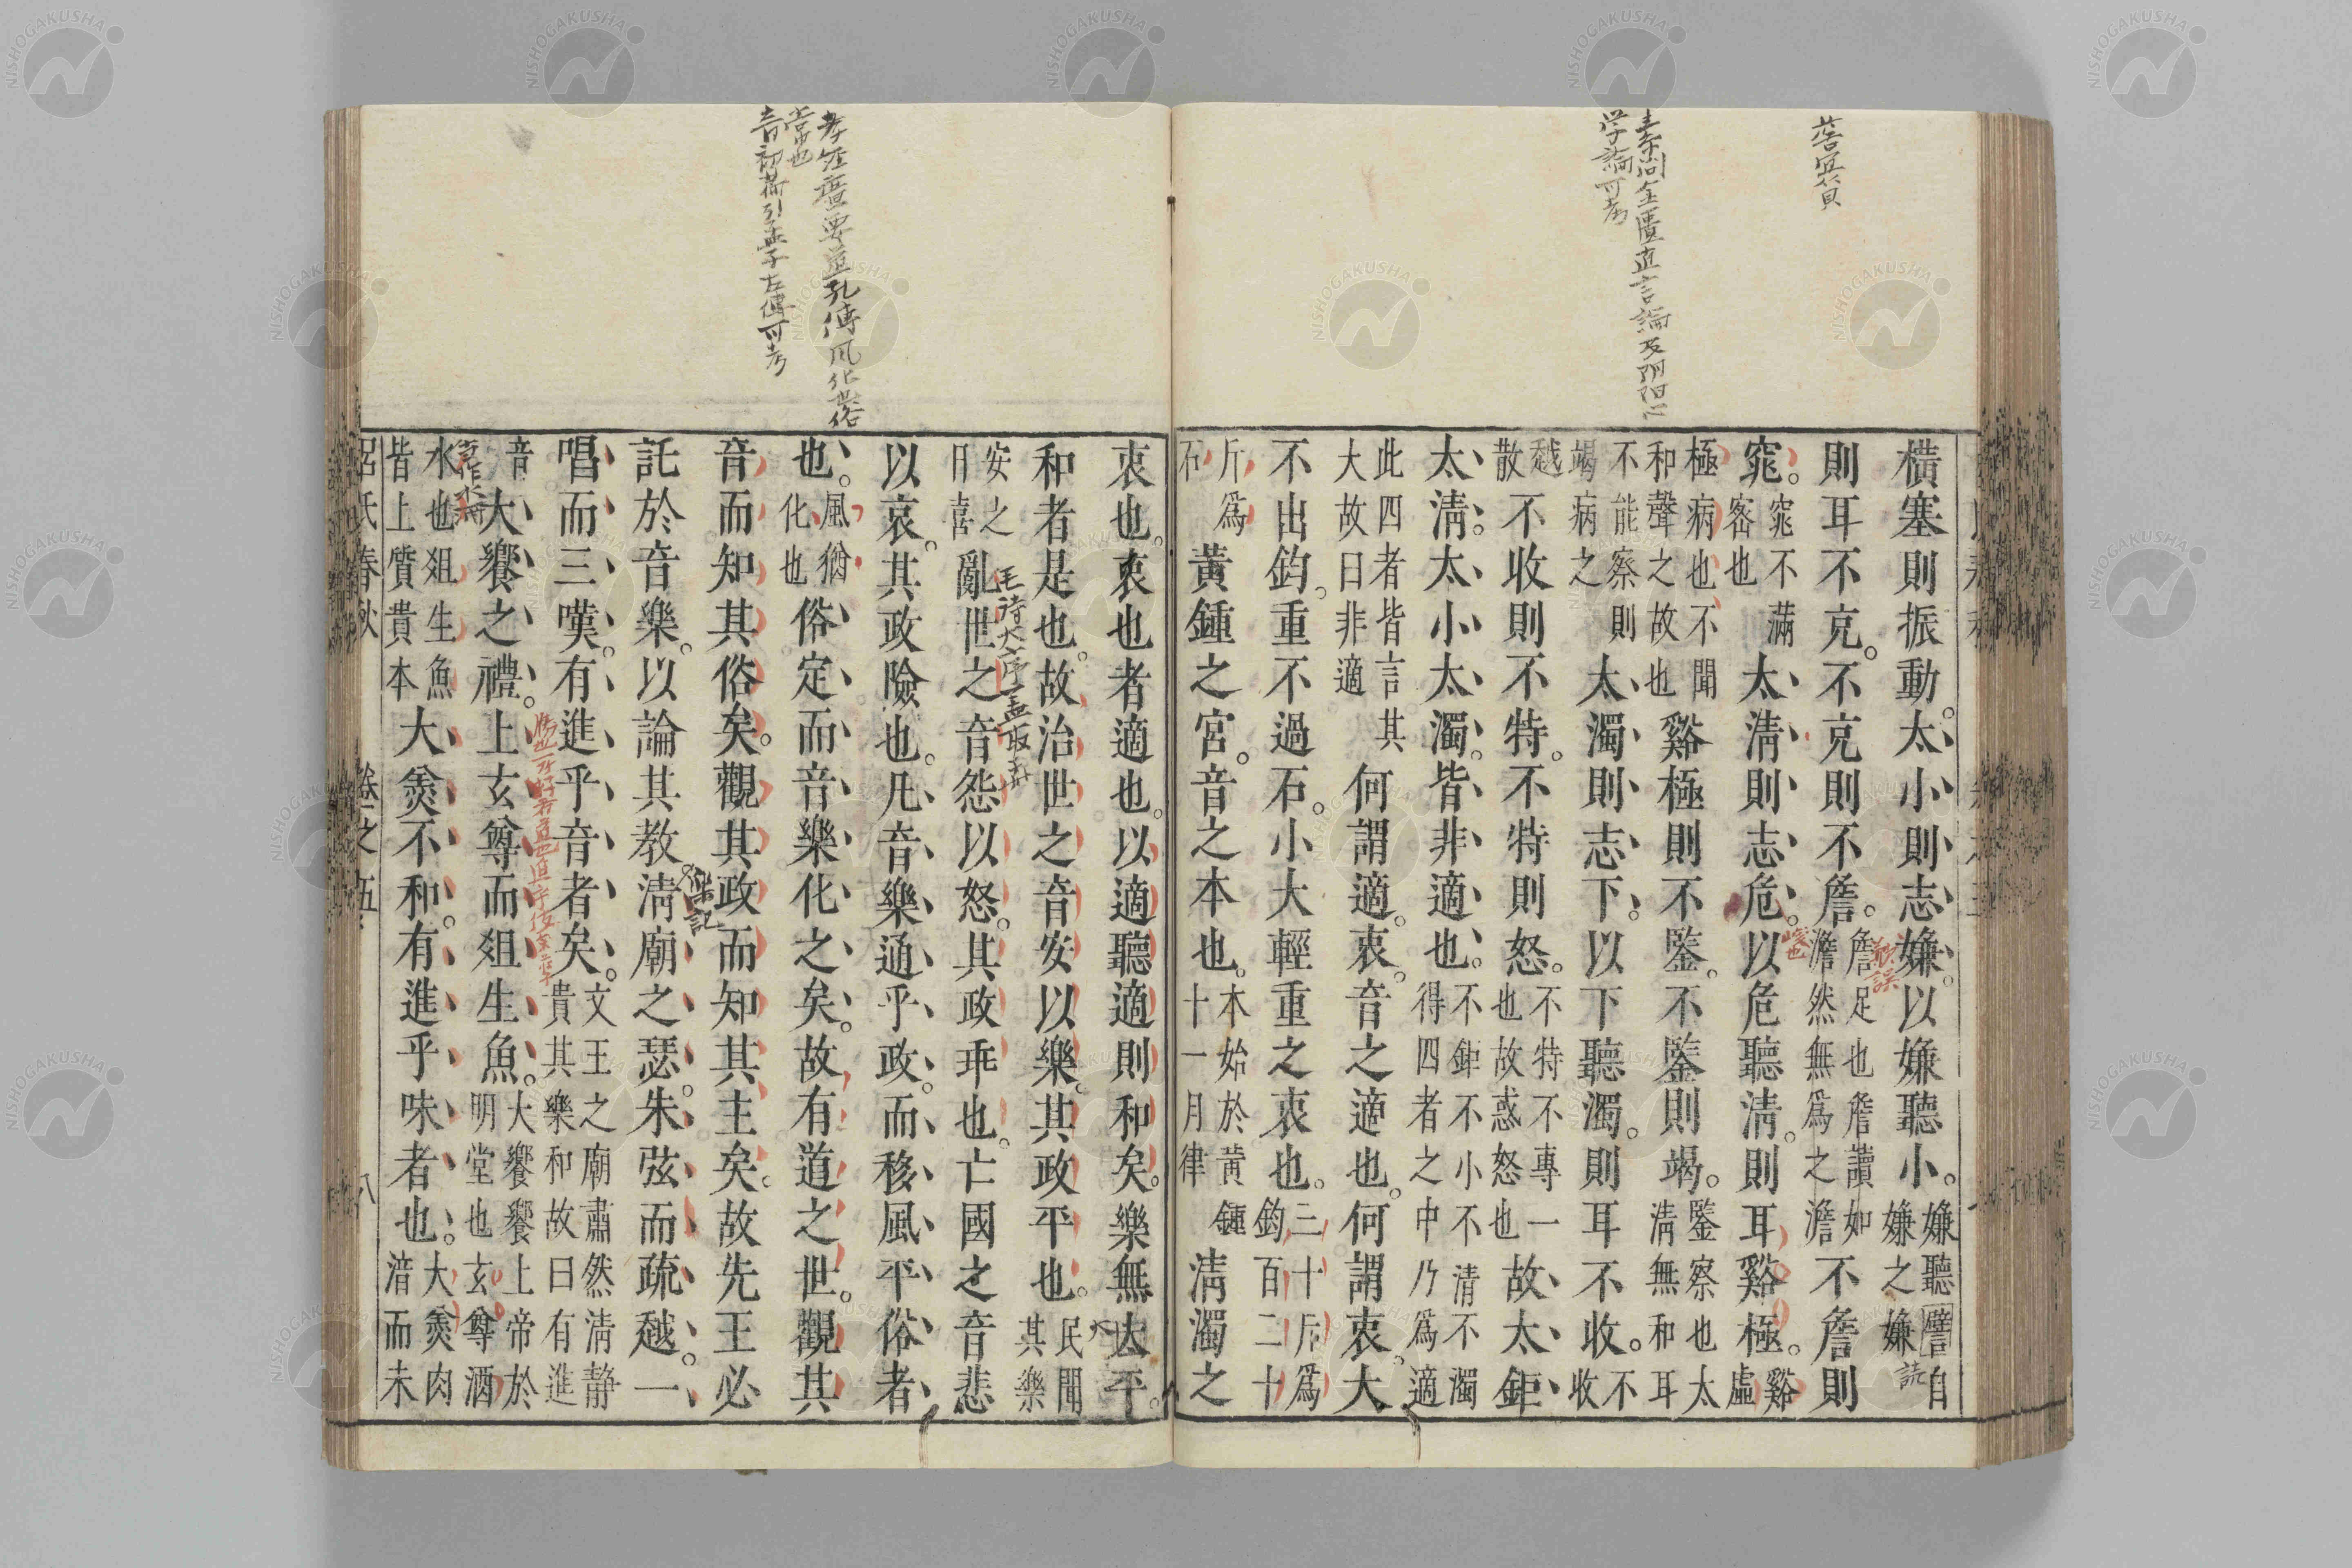 橫塞則振動。太小則志嫌。以嫌聽小。嫌聽譬自嫌之嫌
則耳不充。不充則不詹。詹足也詹讀如澹然無爲之澹不詹則
窕。窕不滿密也太淸則志危。以危聽淸。則耳谿極。谿虛
極病也不聞和聲之故也谿極則不鑒。不鑒則竭。鑒察也太淸無和耳
不能察則竭病之太濁則志下。以下聽濁。則耳不收。不收
越散不收則不特。不特則怒。不特不專一也故惑怒也故太鉅
太淸。太小太濁。皆非適也。不鉅不小不清不濁得四者之中乃爲適
此四者皆言其大故曰非適何謂適。衷。音之適也。何謂衷。大
不出鈞。重不過石。小大輕重之衷也。三十斤爲鈞百二十
斤爲石黃鍾之宮。音之本也。本始於黃鍾十一月律淸濁之
衷也。衷也者適也。以適聽適則和矣。樂無太平。
和者是也。故治世之音安以樂。其政平也。民聞其樂
安之曰喜亂世之音怨以怒。其政乖也。亡國之音悲
以哀。其政險也。凡音樂通乎政。而移風平俗者
也。風猶化也俗定而音樂化之矣。故有道之世。觀其
音而知其俗矣。觀其政而知其主矣。故先王必
託於音樂。以論其教淸廟之瑟。朱弦而疏越。一
唱而三嘆。有進乎音者矣。文王之廟肅然淸靜貴其樂和故曰有進
音大饗之禮。上玄尊而俎生魚。大饗饗上帝於明堂也玄尊酒
水也俎生魚皆上質貴本大羮不和。有進乎味者也。大羮肉湆而未
呂氏春秋 卷之五 八
素問金匱眞言論及阴阳
学論可考
孝経廣要道孔傳風化也俗
常也
音初篇引孟子左傳可考
毛詩大序
樂記